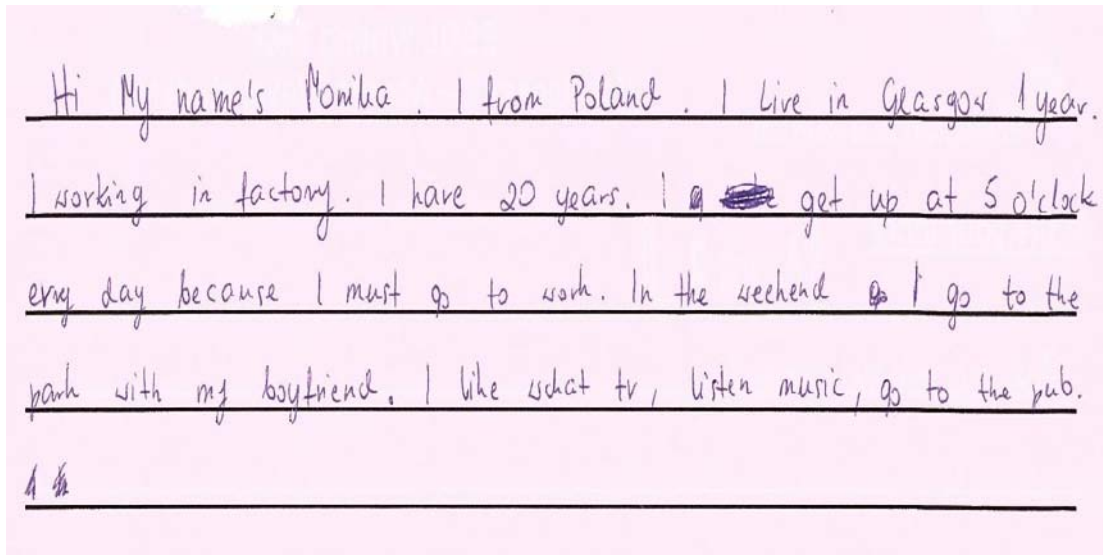 Hi My name's Monika. I from Poland. I Live in Glasgow 1 year.
I working in factory. I have 20 years. I get up at 5 o'clock
evry day because I must go to work. In the weekend I go to the
park with my boyfriend. I like what tv, listen music, go to the pub.